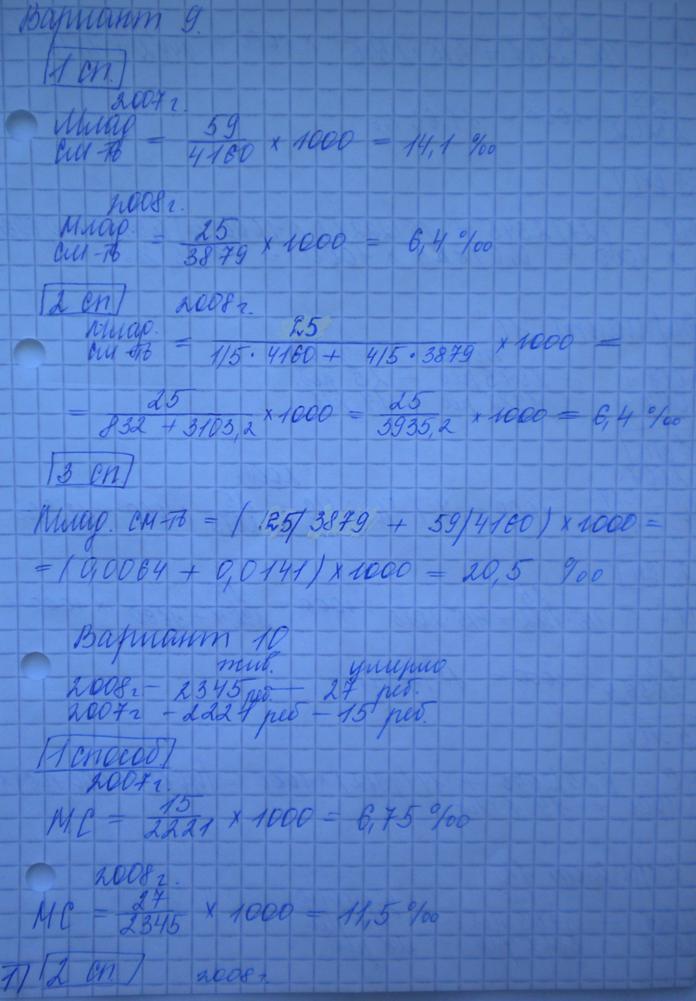 Вариант 9.
1 сп.
2007 г.
Млад. см-ть = 59/4160 × 1000 = 14,1 ‰
2008 г.
Млад. см-ть = 25/3879 × 1000 = 6,4 ‰
2 сп 2008 г.
Млад. см-ть = 25/(1/5 · 4160 + 4/5 · 3879) × 1000 =
= 25/(832 + 3103,2) × 1000 = 25/3935,2 × 1000 = 6,4 ‰
3 сп
Млад. см-ть = (25/3879 + 59/4160) × 1000 =
= (0,0064 + 0,0141) × 1000 = 20,5 ‰
Вариант 10
жив. умерло
2008 г – 2345 реб. – 27 реб.
2007 г – 2221 реб – 15 реб.
1 способ
2007 г.
МС = 15/2221 × 1000 = 6,75 ‰
2008 г.
МС = 27/2345 × 1000 = 11,5 ‰
2 сп 2008 г.